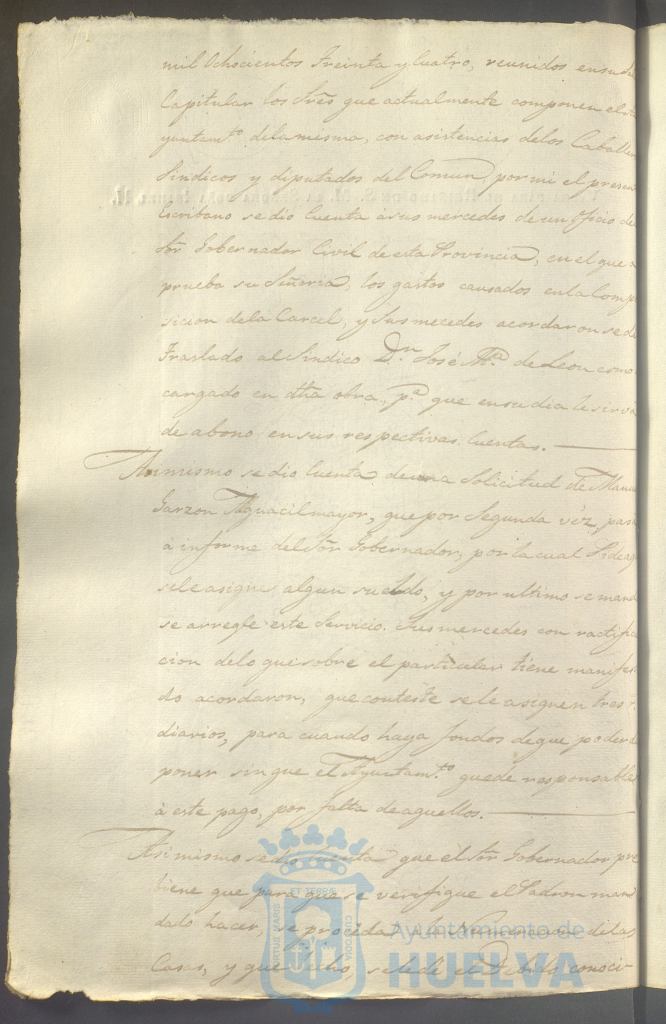 mil Ochocientos treinta y Cuatro, reunidos en su Sala
Capitular los Sres que actualmente componen el
yuntamto. de la misma, con asistencias de los Caballe
Sindicos y diputados del Comun, por mi el presen
Escribano se dio Cuenta á sus mercedes de un Oficio de
Sor Gobernador Civil de esta Provincia, en el que a
prueba su Señoria, los gastos causados en la Compo
sicion de la Carcel, y Sus mecedes acordaron se dé
Traslado al Sindico Dn. José Ma. de Leon como
cargado en dha obra, pa. que en su dia le sirva
de abono en sus respectivas Cuentas.
Asimismo se dio Cuenta de una Solicitud de Manuel
Garzon Alguacil mayor, que por Segunda véz, pasa
á informe del Sor Gobernador, por la cual Pide
se le asigne algun sueldo, y por ultimo se manda
se arregle este Servicio. Sus mercedes con ractifica
cion de lo que sobre el particular tiene manifes
do acordaron, que conteste se le asignen tres r.
diarios, para cuando haya fondos de que poder
poner sin que el Ayuntamto. quede responsable
á este pago, por falta de aquellos.
Asimismo se dio Cuenta que el Sor Gobernador pre
biene que para que se verifique el Padron man
dado hacer, se proceda á la Numeracion de las
Casas, y que se le dé el conoci-
ET TERRE
PORTUS MARIS
CUSTODIA
Ayuntamiento de
HUELVA